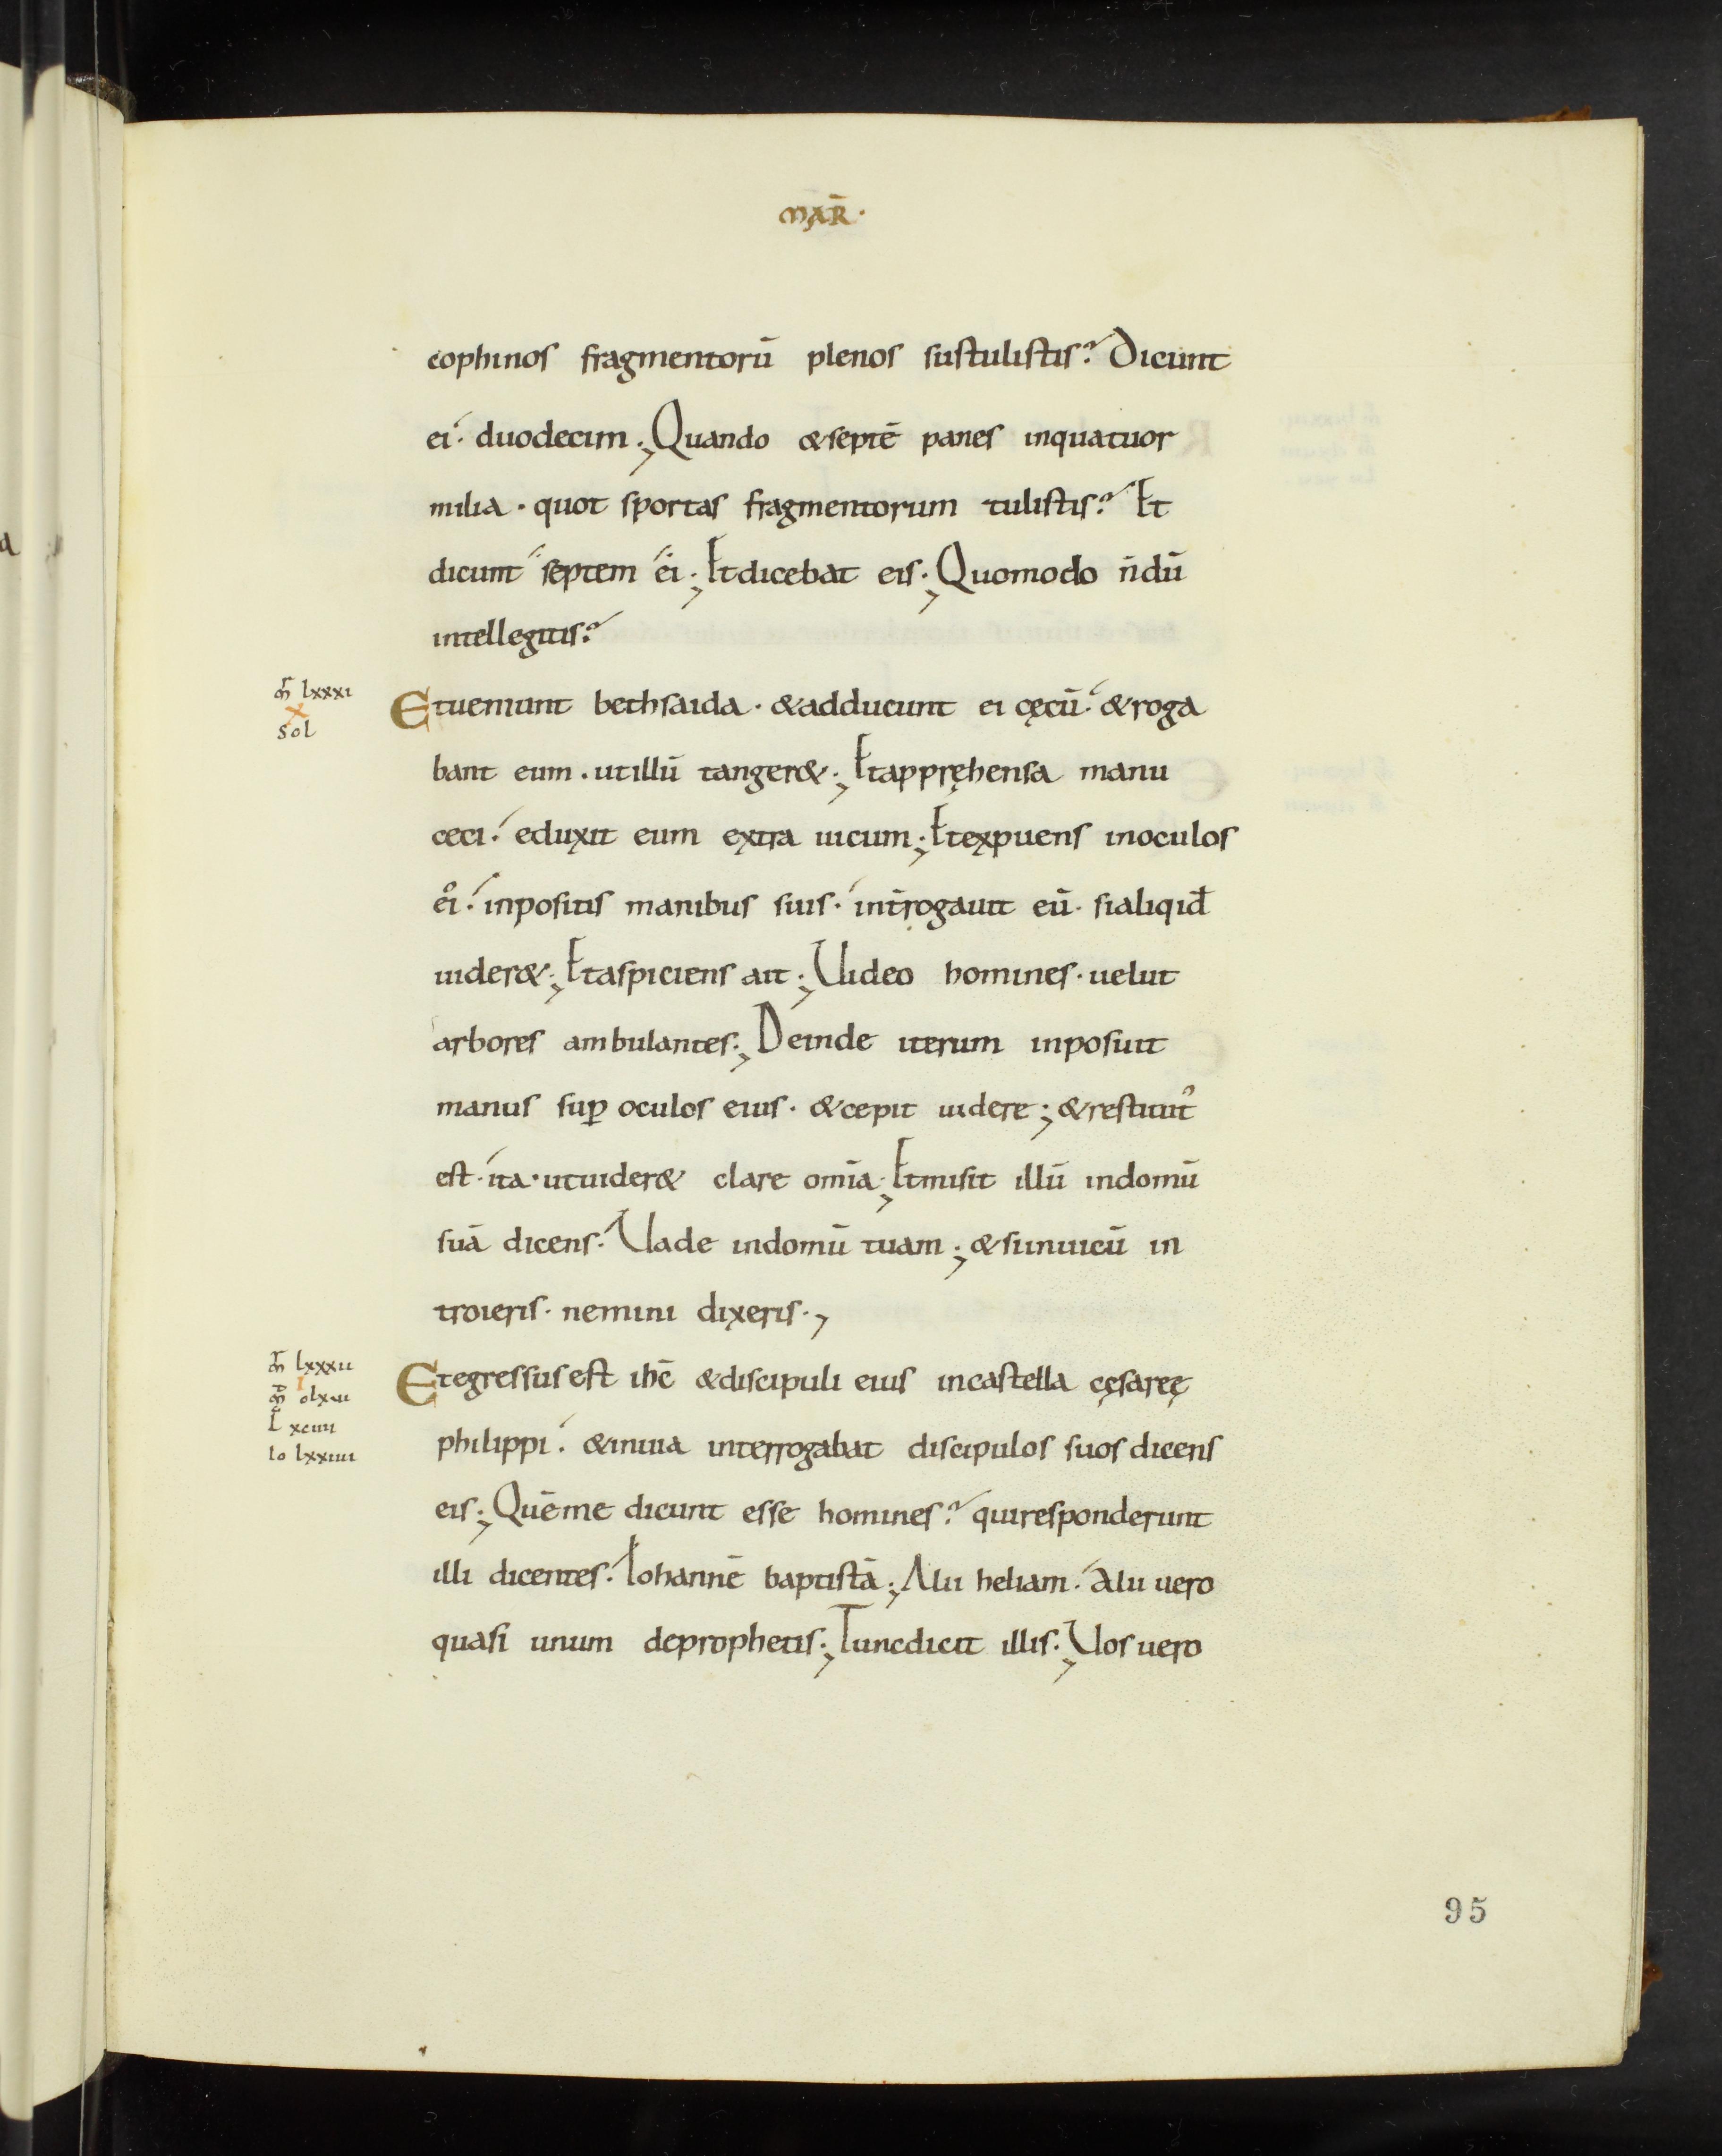 MAR̄.
cophinos fragmentorū plenos sustulistis? Dicunt
ei. duodecim; Quando & septē panes inquatuor
milia. quot sportas fragmentorum tulistis? Et
dicunt septem ei; Et dicebat eis; Quomodo n̄dū
intellegitis?
m̄r lxxxi
x
sol
Et ueniunt bethsaida. & adducunt ei cęcū. & roga
bant eum. utillū tanger&; Et appręhensa manu
ceci. eduxit eum extra uicum; Et expuens inoculos
ei. inpositis manibus suis. int̄rogauit eū. sialiqid
uider&; Et aspiciens ait; Uideo homines. uelut
arbores ambulantes; Deinde iterum inposuit
manus sup̄ oculos eius. & cepit uidere; & restitutꝰ
est. ita. utuider& clare om̄ia; Et misit illū indomū
suā dicens. Uade indomū tuam; & siinuicū in
troieris. nemini dixeris;
m̄r lxxxii
I
m̄t clxvi
L xciiii
Io lxxiiii
Et egressus est ihc̄ & discipuli eius incastella cęsaręę
philippi. & inuia interrogabat discipulos suos dicens
eis; Quēme dicunt esse homines? quiresponderunt
illi dicentes. Iohannē baptistā; Alii heliam. Alii uero
quasi unum deprophetis; Tuncdicit illis; Uos uero
95